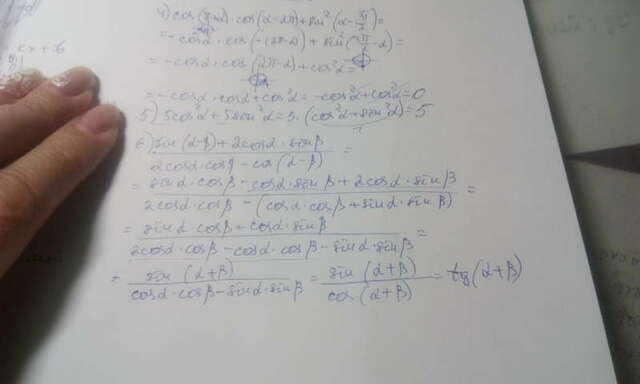 kx+b
4) cos(π-α)·cos(α-2π)+sin²(α-π/2)=
=-cosα·cos(-(2π-α))+sin²(π/2-α)=
=-cosα·cos(2π-α)+cos²α=
=-cosα·cosα+cos²α=-cos²α+cos²α=0
5) 5cos²α+5sin²α=5·(cos²α+sin²α)=5
6) sin(α-β)+2cosα·sinβ
2cosα·cosβ-cos(α-β) =
= sinα·cosβ-cosα·sinβ+2cosα·sinβ
2cosα·cosβ-(cosα·cosβ+sinα·sinβ) =
= sinα·cosβ+cosα·sinβ
2cosα·cosβ-cosα·cosβ-sinα·sinβ =
= sin(α+β) = sin(α+β) = tg(α+β)
cosα·cosβ-sinα·sinβ cos(α+β)